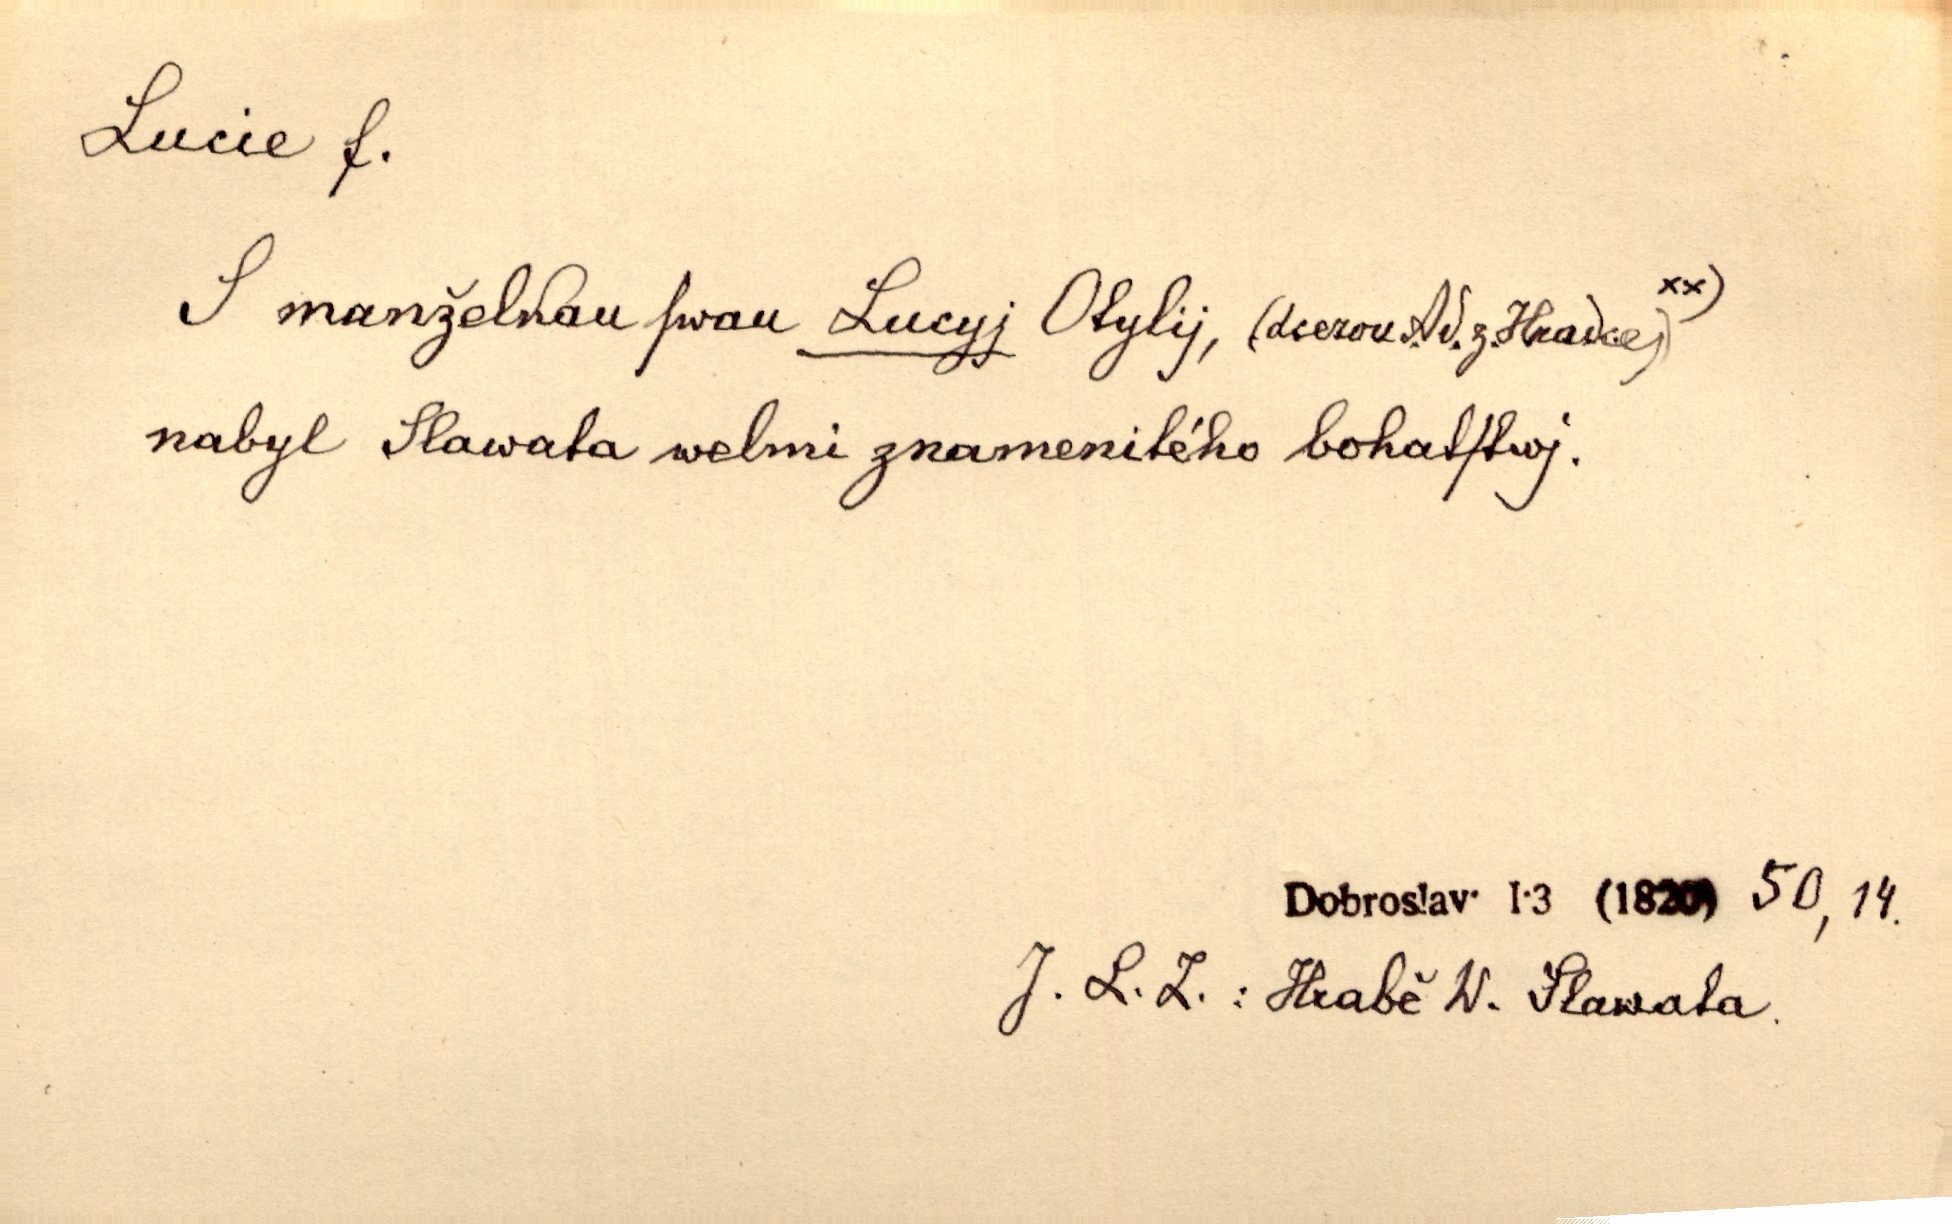 Lucie f.
S manželkau ſwau Lucyj Otylij, (dcerou Ad. z Hradce) xx)
nabyl Slawata welmi znamenitého bohatſtwj.
Dobroslav I·3 (1820) 50, 14.
J. L. Z. : Hrabě W. Slawata.